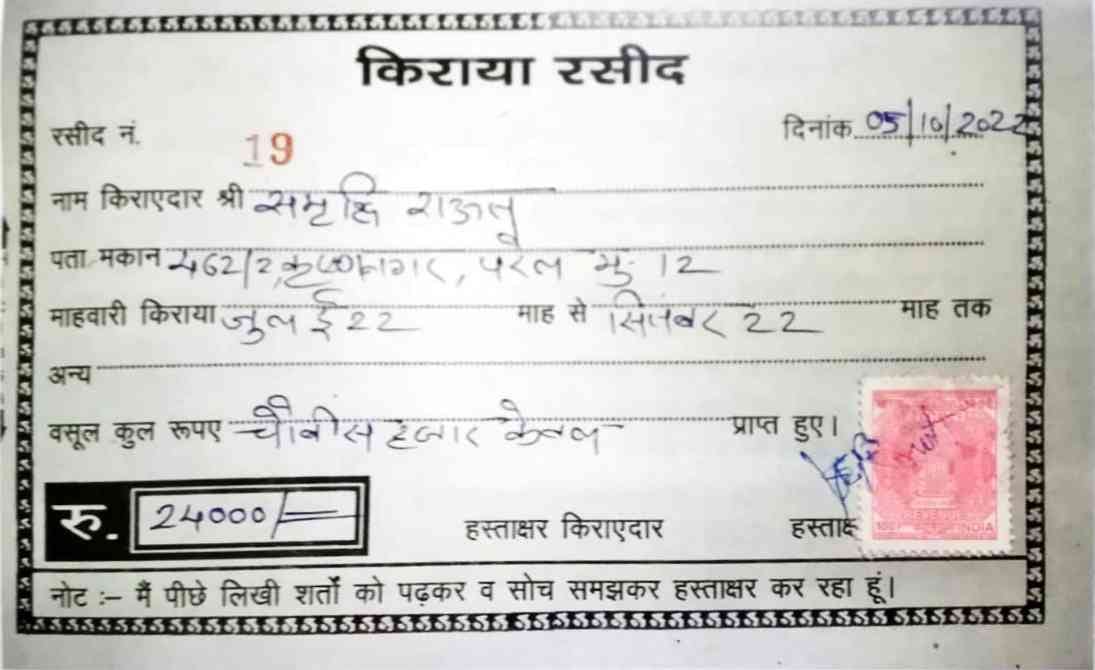 किराया रसीद
रसीद नं. 19 दिनांक 05/10/2022
नाम किराएदार श्री समृद्धि राऊत
पता मकान 462/2, कृष्णानगर, परेल मु. 12
माहवारी किराया जुलाई 22 माह से सितंबर 22 माह तक
अन्य
वसूल कुल रूपए चौबीस हजार केवल प्राप्त हुए।
रु. 24000/=
हस्ताक्षर किराएदार हस्ताक्ष
INDIA
नोट :- मैं पीछे लिखी शर्तों को पढ़कर व सोच समझकर हस्ताक्षर कर रहा हूं।